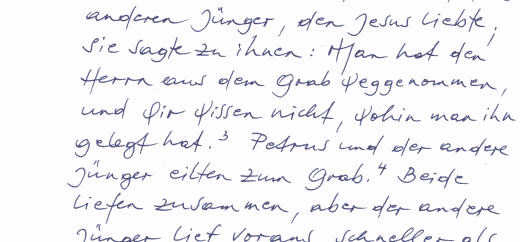 anderen Jünger, den Jesus liebte;
sie sagte zu ihnen: Man hat den
Herrn aus dem Grab weggenommen,
und wir wissen nicht, wohin man ihn
gelegt hat.³ Petrus und der andere
Jünger eilten zum Grab.⁴ Beide
liefen zusammen, aber der andere
Jünger lief voraus, schneller als